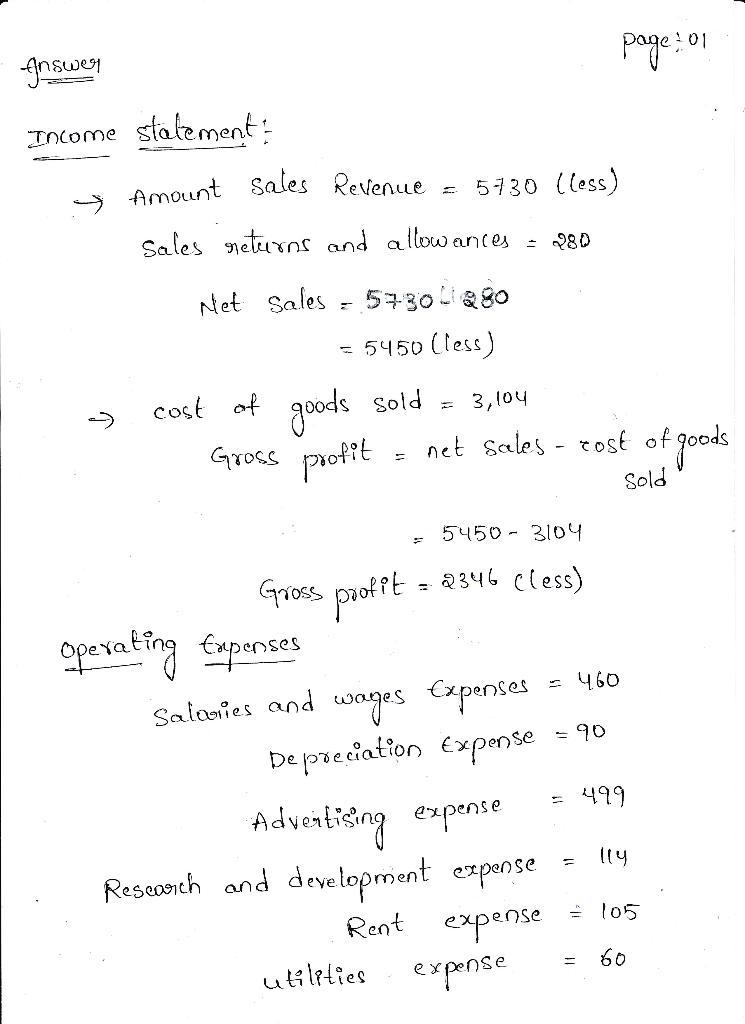 Page: 01
Answer
Income statement:
→ Amount Sales Revenue = 5730 (less)
Sales returns and allowances = 280
Net Sales = 5730 - 280
= 5450 (less)
→ cost of goods sold = 3,104
Gross profit = net sales - cost of goods
Sold
= 5450 - 3104
Gross profit = 2346 (less)
Operating Expenses
Salaries and wages Expenses = 460
Depreciation Expense = 90
Advertising expense = 499
Research and development expense = 114
Rent expense = 105
utilities expense = 60